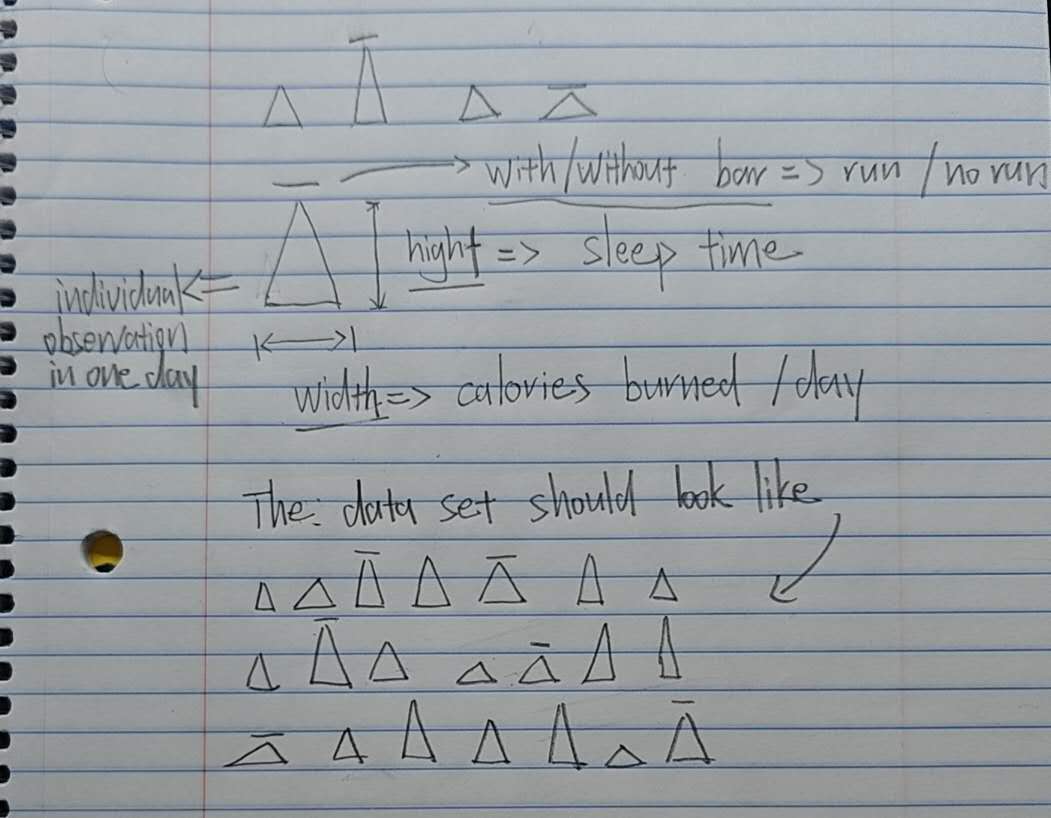 with/without bar => run / no run
hight => sleep time
individual <=
observation
in one day
width => calories burned / day
The: data set should look like